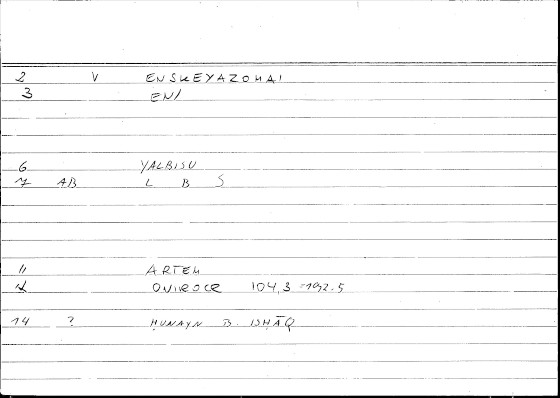 2 V ENSKEYAZOHAI
3 ENI
6 YALBISU
7 AB L B S
11 ARTEM
12 ONIROCR 104,3 -192.5
14 ? ḤUNAYN B. ISḤĀQ